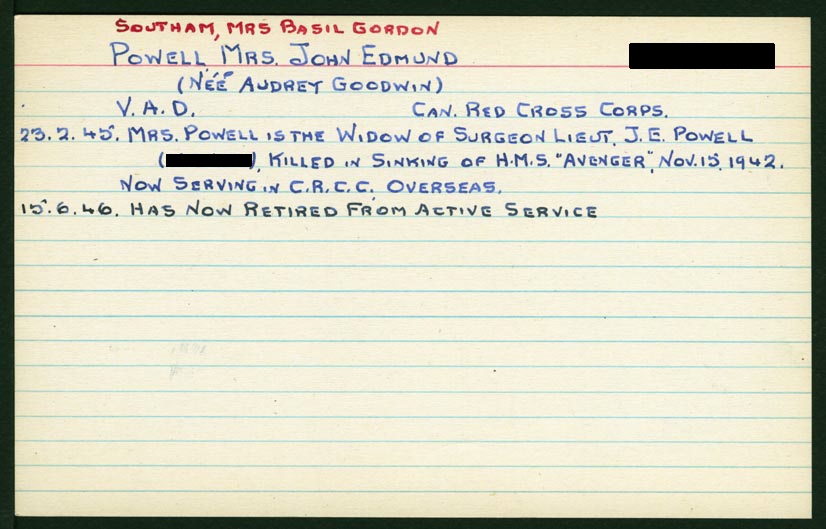 SOUTHAM, MRS BASIL GORDON
POWELL MRS. JOHN EDMUND
(NÉE AUDREY GOODWIN)
V. A. D. CAN. RED CROSS CORPS.
23.2.45. MRS. POWELL IS THE WIDOW OF SURGEON LIEUT. J. E. POWELL
( ), KILLED IN SINKING OF H.M.S. "AVENGER", NOV. 15, 1942.
NOW SERVING IN C.R.C.C. OVERSEAS.
15.6.46. HAS NOW RETIRED FROM ACTIVE SERVICE